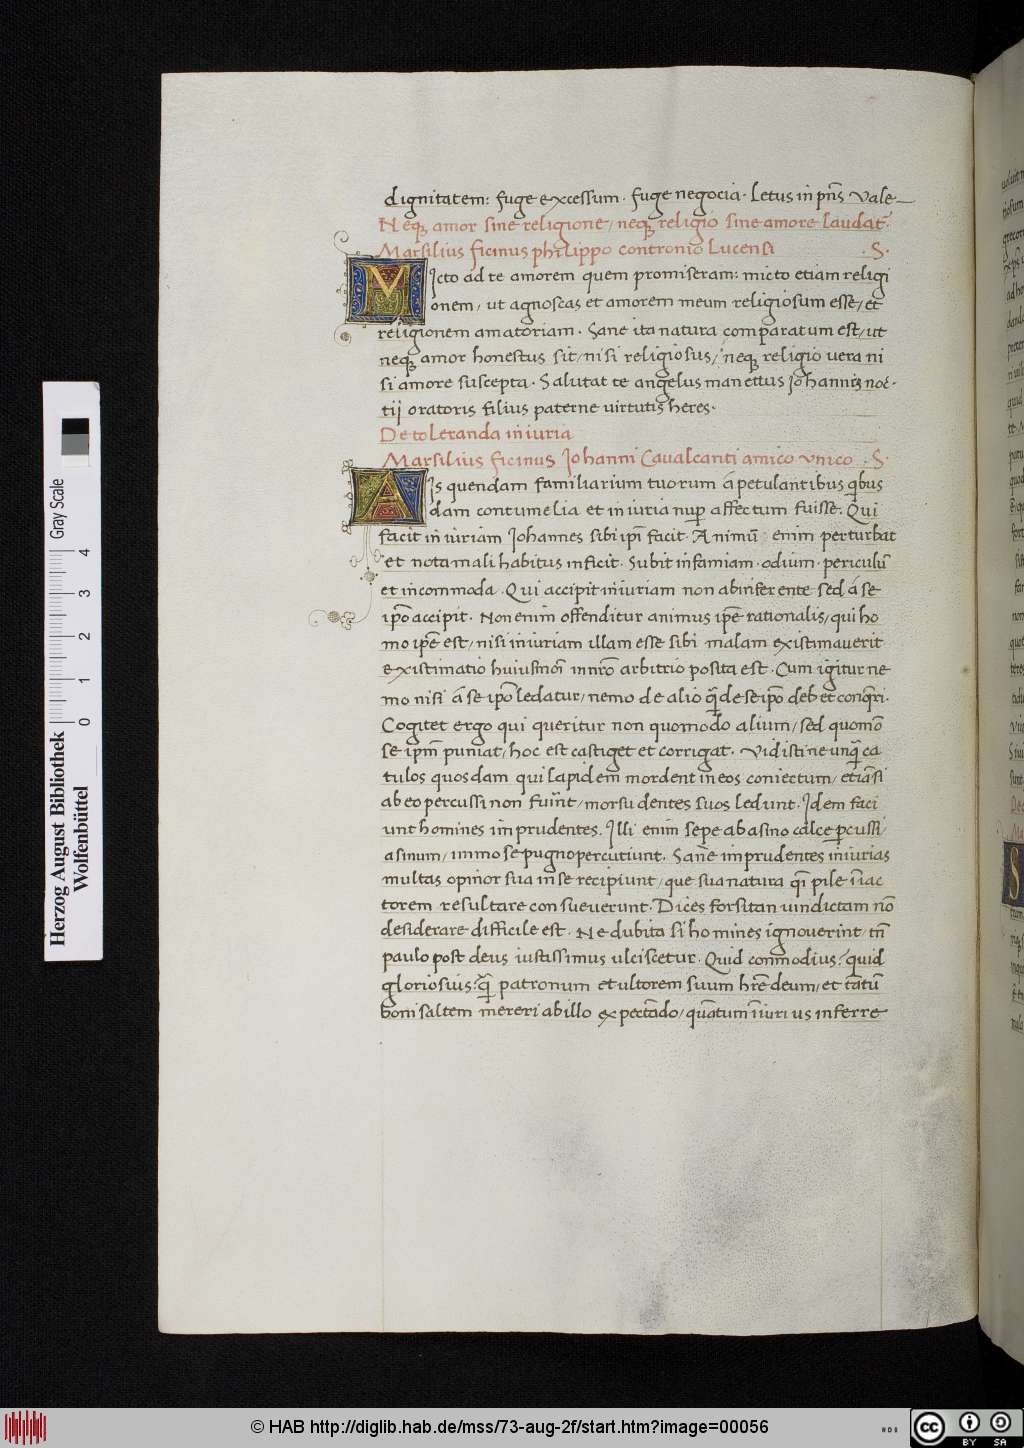 dignitatem: fuge excessum. fuge negocia. Letus in pñs Vale
Neqꝫ amor sine religione/ neqꝫ religio sine amore laudat̄.
Marsilius ficinus philippo contronio Lucensi .S.
Micto ad te amorem quem promiseram: micto etiam religi
onem, ut agnoscas et amorem meum religiosum esse, et
religionem amatoriam. Sane ita natura comparatum est, ut
neqꝫ amor honestus sit, nisi religiosus, neqꝫ religio vera ni
si amore suscepta. Salutat te angelus manettus Johannis
tij oratoris filius paterne virtutis heres.
De toleranda iniuria
Marsilius ficinus Johanni Cavalcanti amico unico .S.
Ais quendam familiarium tuorum á petulantibus qͥbus
dam contumelia et iniuria nuꝑ affectum fuisse. Qui
facit iniuriam Johannes sibi ip̄i facit. Animū enim perturbat
et nota mali habitus inficit. Subit infamiam. odium. periculū
et incommoda. Qui accipit iniuriam non ab inferente sed á se
ip̄o accipit. Non enim offenditur animus ip̄e rationalis, qui ho
mo ip̄e est, nisi iniuriam illam esse sibi malam existimaverit
existimatio huiusmōi in nr̄o arbitrio posita est. Cum igitur ne
mo nisi á se ip̄o ledatur, nemo de alio q̄ de se ip̄o debet conq̄ri.
Cogitet ergo qui queritur non quomodo alium, sed quomō
se ip̄m puniat, hoc est castiget et corrigat. Vidistine unq̄ ca
tulos quosdam qui lapidem mordent in eos coniectum, etiā si
ab eo percussi non fuīnt, morsu dentes suos ledunt. Idem faci
unt homines imprudentes. Illi enim sepe ab asino calce ꝑcussi,
asinum, immo se pugno percutiunt. Sane imprudentes iniurias
multas opinor sua in se recipiunt, que sua natura q̄ pile ī iac
torem resultare consueverunt. Dices forsitan vindictam nō
desiderare difficile est. Ne dubita si homines ignoverint, tn̄
paulo post deus iustissimus ulciscetur. Quid commodius? quid
gloriosius? q̄ patronum et ultorem suum hr̄e deum, et tātū
boni saltem mereri ab illo expectādo, quātum īiurius inferre
Herzog August Bibliothek
Wolfenbüttel
Gray Scale
0 1 2 3 4
© HAB http://diglib.hab.de/mss/73-aug-2f/start.htm?image=00056
CC BY SA